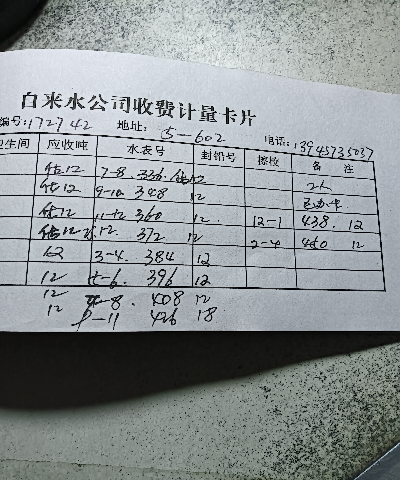 自来水公司收费计量卡片
编号:172742 地址: 5-602 电话: 13945735037
卫生间 应收吨 水表号 封铅号 擦校 备 注
估12 7-8. 336. 估12 2人
估12 9-10 348 12 已办卡
估12 11-12 360 12. 12-1 438. 12
估12 12. 372 12 2-4 450 12
3-4. 384 12
12 5-6. 396 12
12 7-8. 408 12
12 9-11 426 18